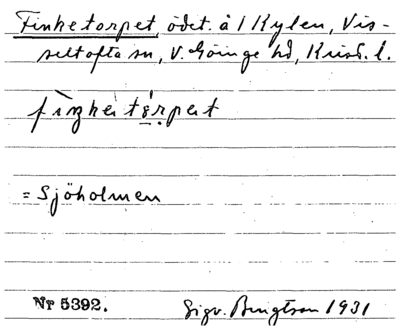 Finketorpet, ödet. å 1 Kylen, Vis-
seltofta sn, V. Göinge hd, Krist. l.
= Sjöholmen
Nr 5392.
Sigv. Bengtson 1931